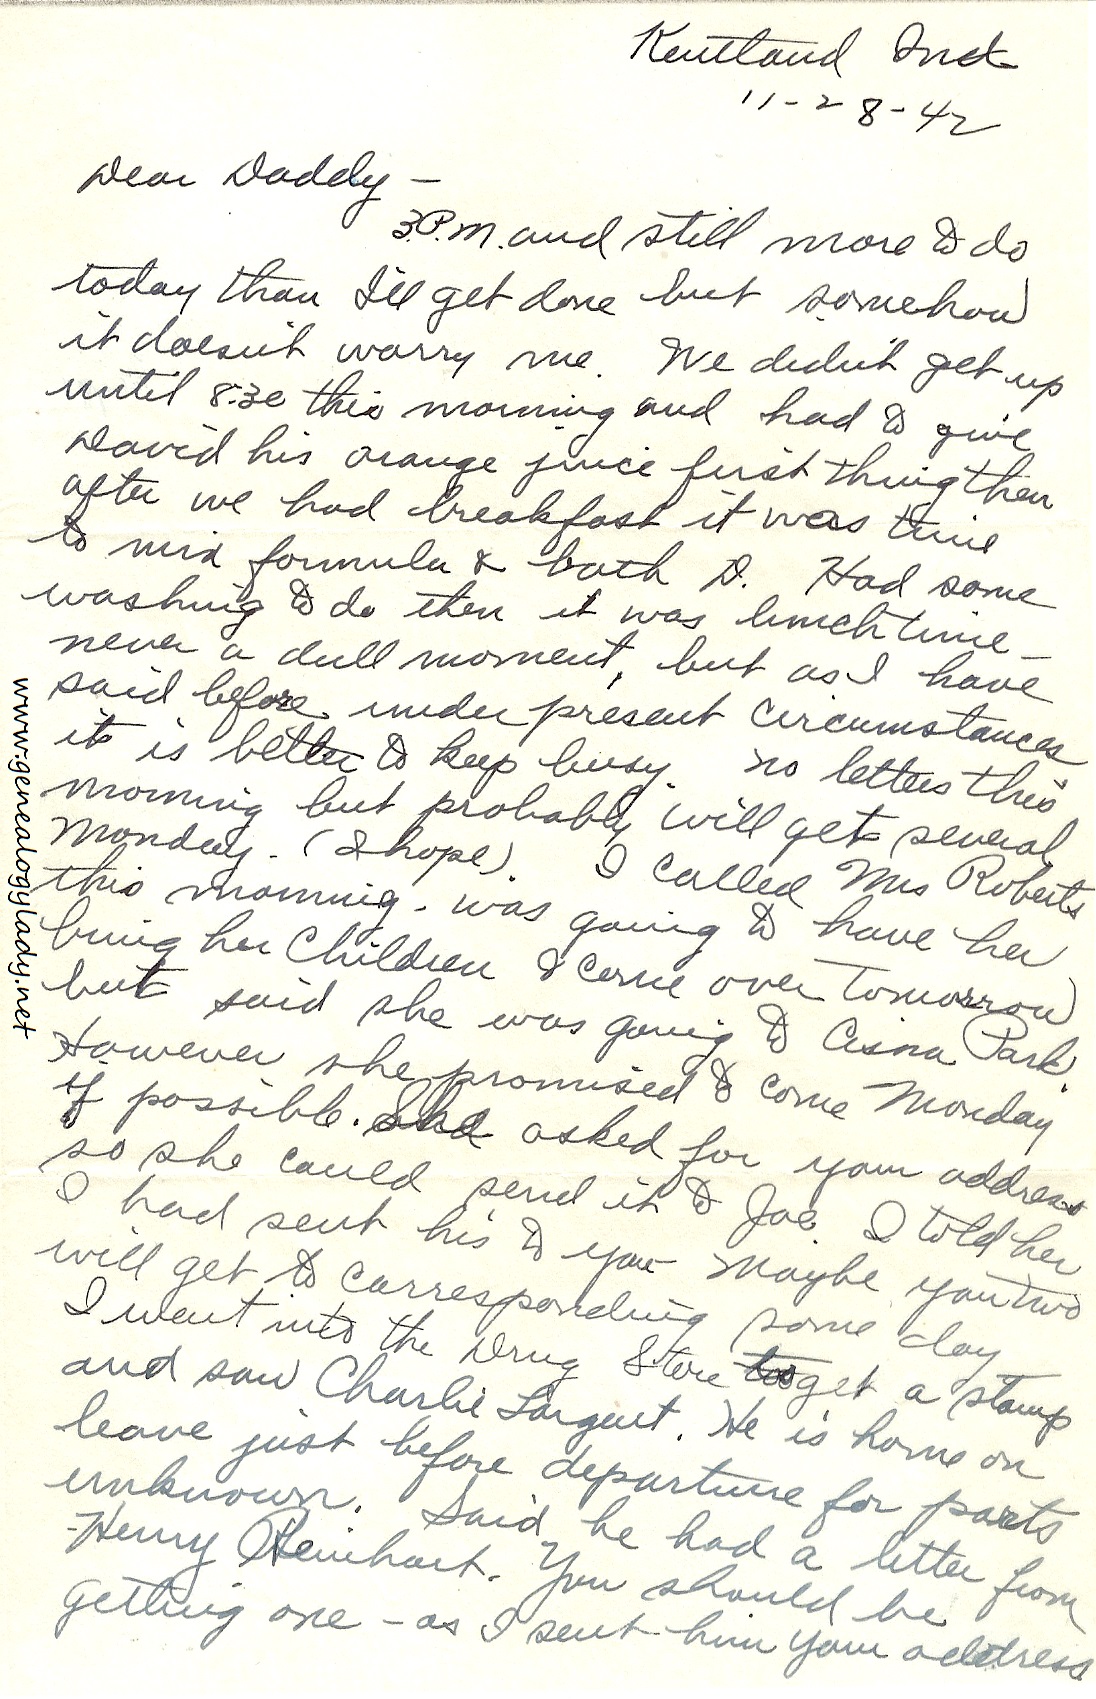 Kentland Ind
11-28-42
Dear Daddy –
3P.M. and still more to do
today than I'll get done but somehow
it doesn't worry me. We didn't get up
until 8:30 this morning and had to give
David his orange juice first thing then
after we had breakfast it was time
to mix formula & bath D. Had some
washing to do then it was lunch time –
never a dull moment, but as I have
said before under present circumstances
it is better to keep busy. No letters this
morning but probably will get several
Monday. (I hope). I called Mrs Roberts
this morning - was going to have her
bring her children & come over tomorrow
but said she was going to Cissna Park.
However she promised to come Monday
if possible. She asked for your address
so she could send it to Joe. I told her
I had sent his to you Maybe you two
will get to corresponding some day
I went into the Drug Store to get a stamp
and saw Charlie Sargent. He is home on
leave just before departure for parts
unknown. Said he had a letter from
Henry Reinhart. You should be
getting one – as I sent him your address
www.genealogylady.net